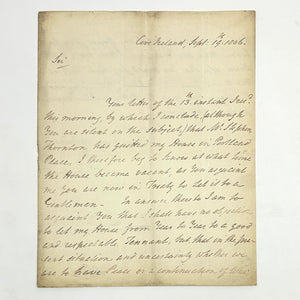 Cove Ireland. Sept. 19th. 1806.
Sir
Your letter of the 13th instant I rec.d
this morning, by which I conclude, (although
You are silent on the Subject,) that Mr. Stephen
Thornton has quitted my House in Portland
Place. I therefore beg to know at what time
the House became vacant, as You acquaint
me You are now in Treaty to let it to a
Gentleman. — In answer thereto I am to
acquaint You that I shall have no objection
to let my House from Year to Year to a good
and respectable Tennant, but that in the pre-
sent situation and uncertainty whether we
are to have Peace or a continuation of War